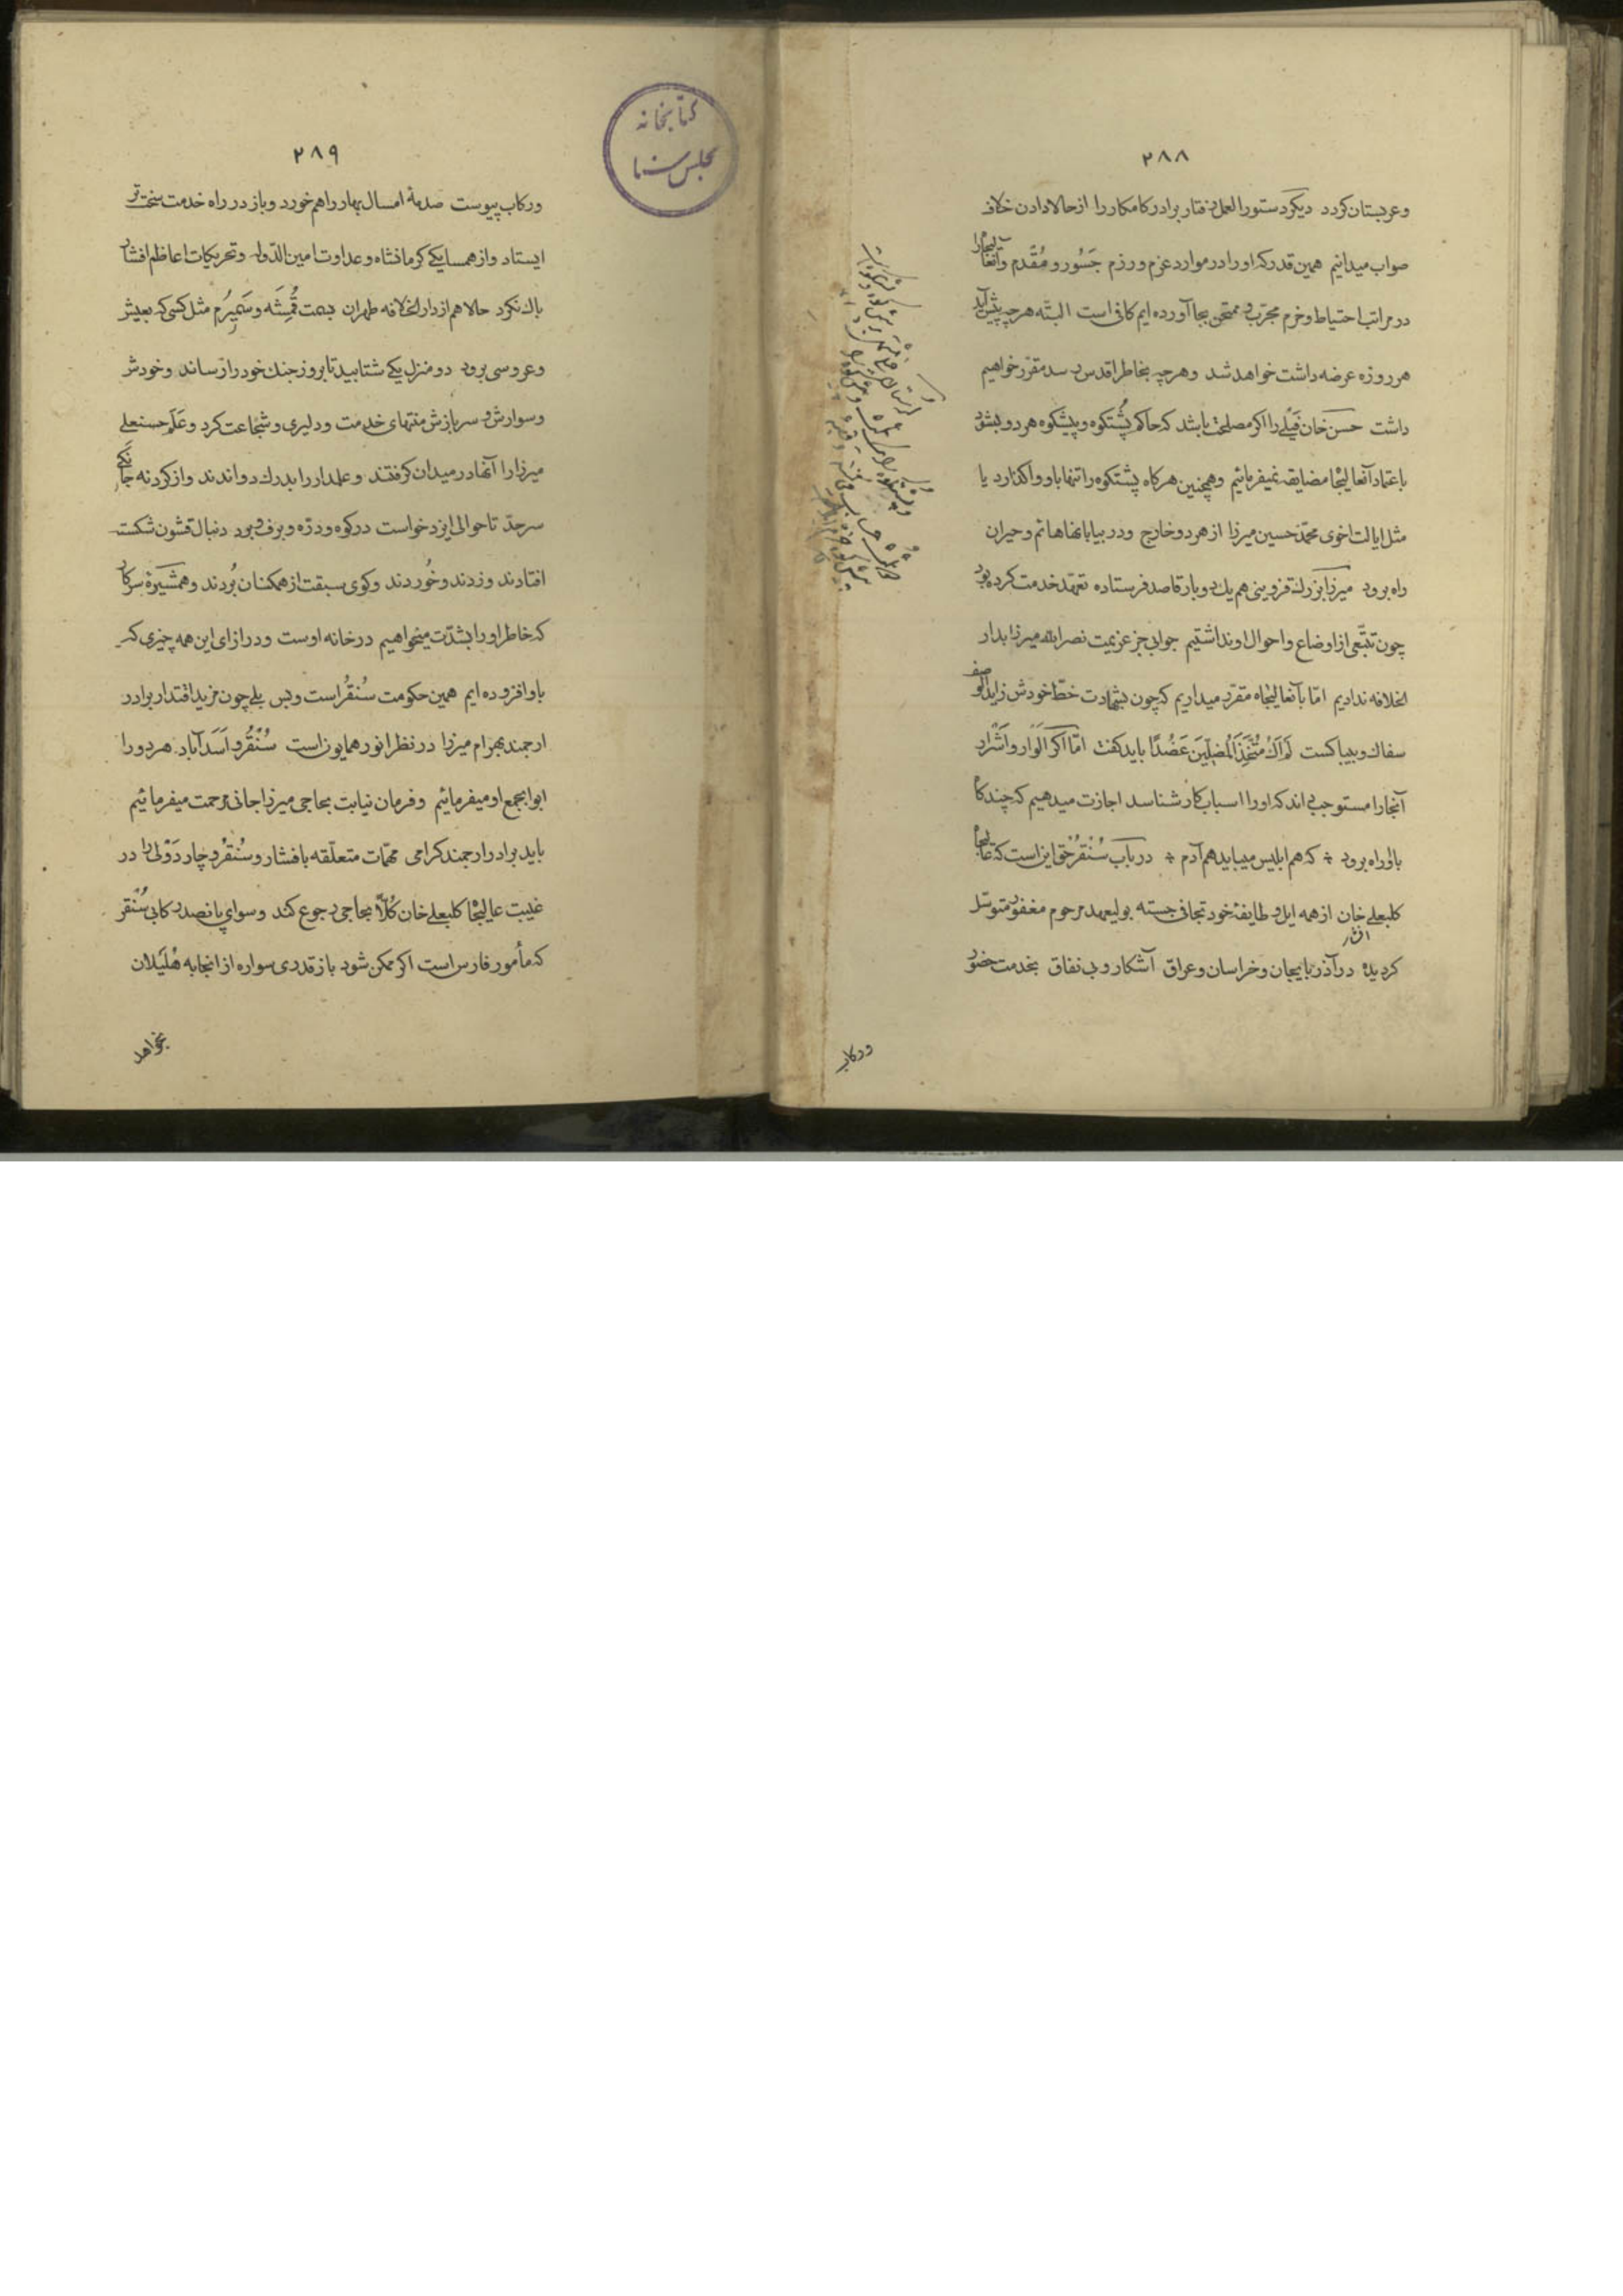 ۲۸۸
وعربستان کردد دیکر دستور العمل رفتار برادر کامکار را از حالا دادن خلاف
صواب میدانیم همین قدر که او را در موارد عزم و رزم جَسُور و مُقدم و آنعالیجاه را
در مراتب احتیاط و حزم مجرّب و ممتحن بجا آورده ایم کافی است البتّه هرچه پیش آید
هر روزه عرضه داشت خواهد شد و هرچه بخاطر اقدس رسد مقرّر خواهیم
داشت حسن خان فَیلی را اکر مصلحت باشد که حاکم پُشتکوه و پیشکوه هر دو بشود
باعتماد آنعالیجاه مضایقه نمیفرمائیم و همچنین هرکاه پشتکوه را تنها باو واکذارد یا
مثل ایالت اخوی محمّد حسین میرزا از هر دو خارج و در بیابانها هائم و حیران
راه برود میرزا بزرک قزوینی هم یک دو بار قاصد فرستاده تعهّد خدمت کرده بود
چون تتبّعی از اوضاع و احوال او نداشتیم جوابی جز عزیمت نصرالله میرزا بدار
الخلافه ندادیم امّا بآنعالیجاه مقرّر میداریم که چون بشهادت خطّ خودش زاید الوصف
سفاک و بیباکست لَم اَکُ مُتَّخِذَ المُضِلّینَ عَضُدًا باید کفت امّا اکر الوار و اشرار
آنجا را مستوجب اند که او را اسباب کار شناسد اجازت میدهیم که چند کاه
با او راه برود ؞ که هم ابلیس میباید هم آدم ؞ در باب سُنقُر حق این است که عالیجاه
کلبعلی خان از همه ایل و طایفهٔ خود تجانی جسته بولیعهد مرحوم مغفور متوسّل
افشار
کردیده در آذربایجان و خراسان و عراق آشکار و بی نفاق بخدمت حضور
ورکاب
۲۸۹
ورکاب پیوست صدمهٔ امسال بهار را هم خورد و باز در راه خدمت سخت تر
ایستاد و از همسایکی کرمانشاه و عداوت امین الدّوله و تحریکات اعاظم افشار
باک نکرد حالا هم از دار الخلافه طهران بسمت قُمِشَه و سَمیرُم مثل کسی که بعیش
و عروسی برود دو منزل یکی شتابید تا بروز جنک خود را رساند و خودش
و سوارش و سربازش منتهای خدمت و دلیری و شجاعت کرد و عَلَم حسنعلی
میرزا را آنها در میدان کرفتند و علمدار را بدرک دواندند و از کردنه جانکی
سرحدّ تا حوالی ایزدخواست در کوه و درّه و برف و برد دنبال قشون شکست
افتادند و زدند و خُوردند و کوی سبقت از همکنان بُردند و همشیرهٔ سرکار
که خاطر او را بشدّت میخواهیم در خانه اوست و در ازای این همه چیزی که
باو افزوده ایم همین حکومت سُنقُر است و بس بلی چون مزید اقتدار برادر
ارجمند بهرام میرزا در نظر انور همایون است سُنقُر و اَسَدآباد هر دو را
ابوابجمع او میفرمائیم و فرمان نیابت بحاجی میرزا جانی مرحمت میفرمائیم
باید برادر ارجمند کرامی مهمّات متعلّقه بافشار و سُنقُر و چاردَوْلی را در
غیبت عالیجاه کلبعلی خان کُلاًّ بحاجی رجوع کند و سوای پانصد رکابی سُنقر
که مأمور فارس است اکر ممکن شود باز قدری سواره از انجا به هُلَیلان
بخواهد
کتابخانه
مجلس سنا